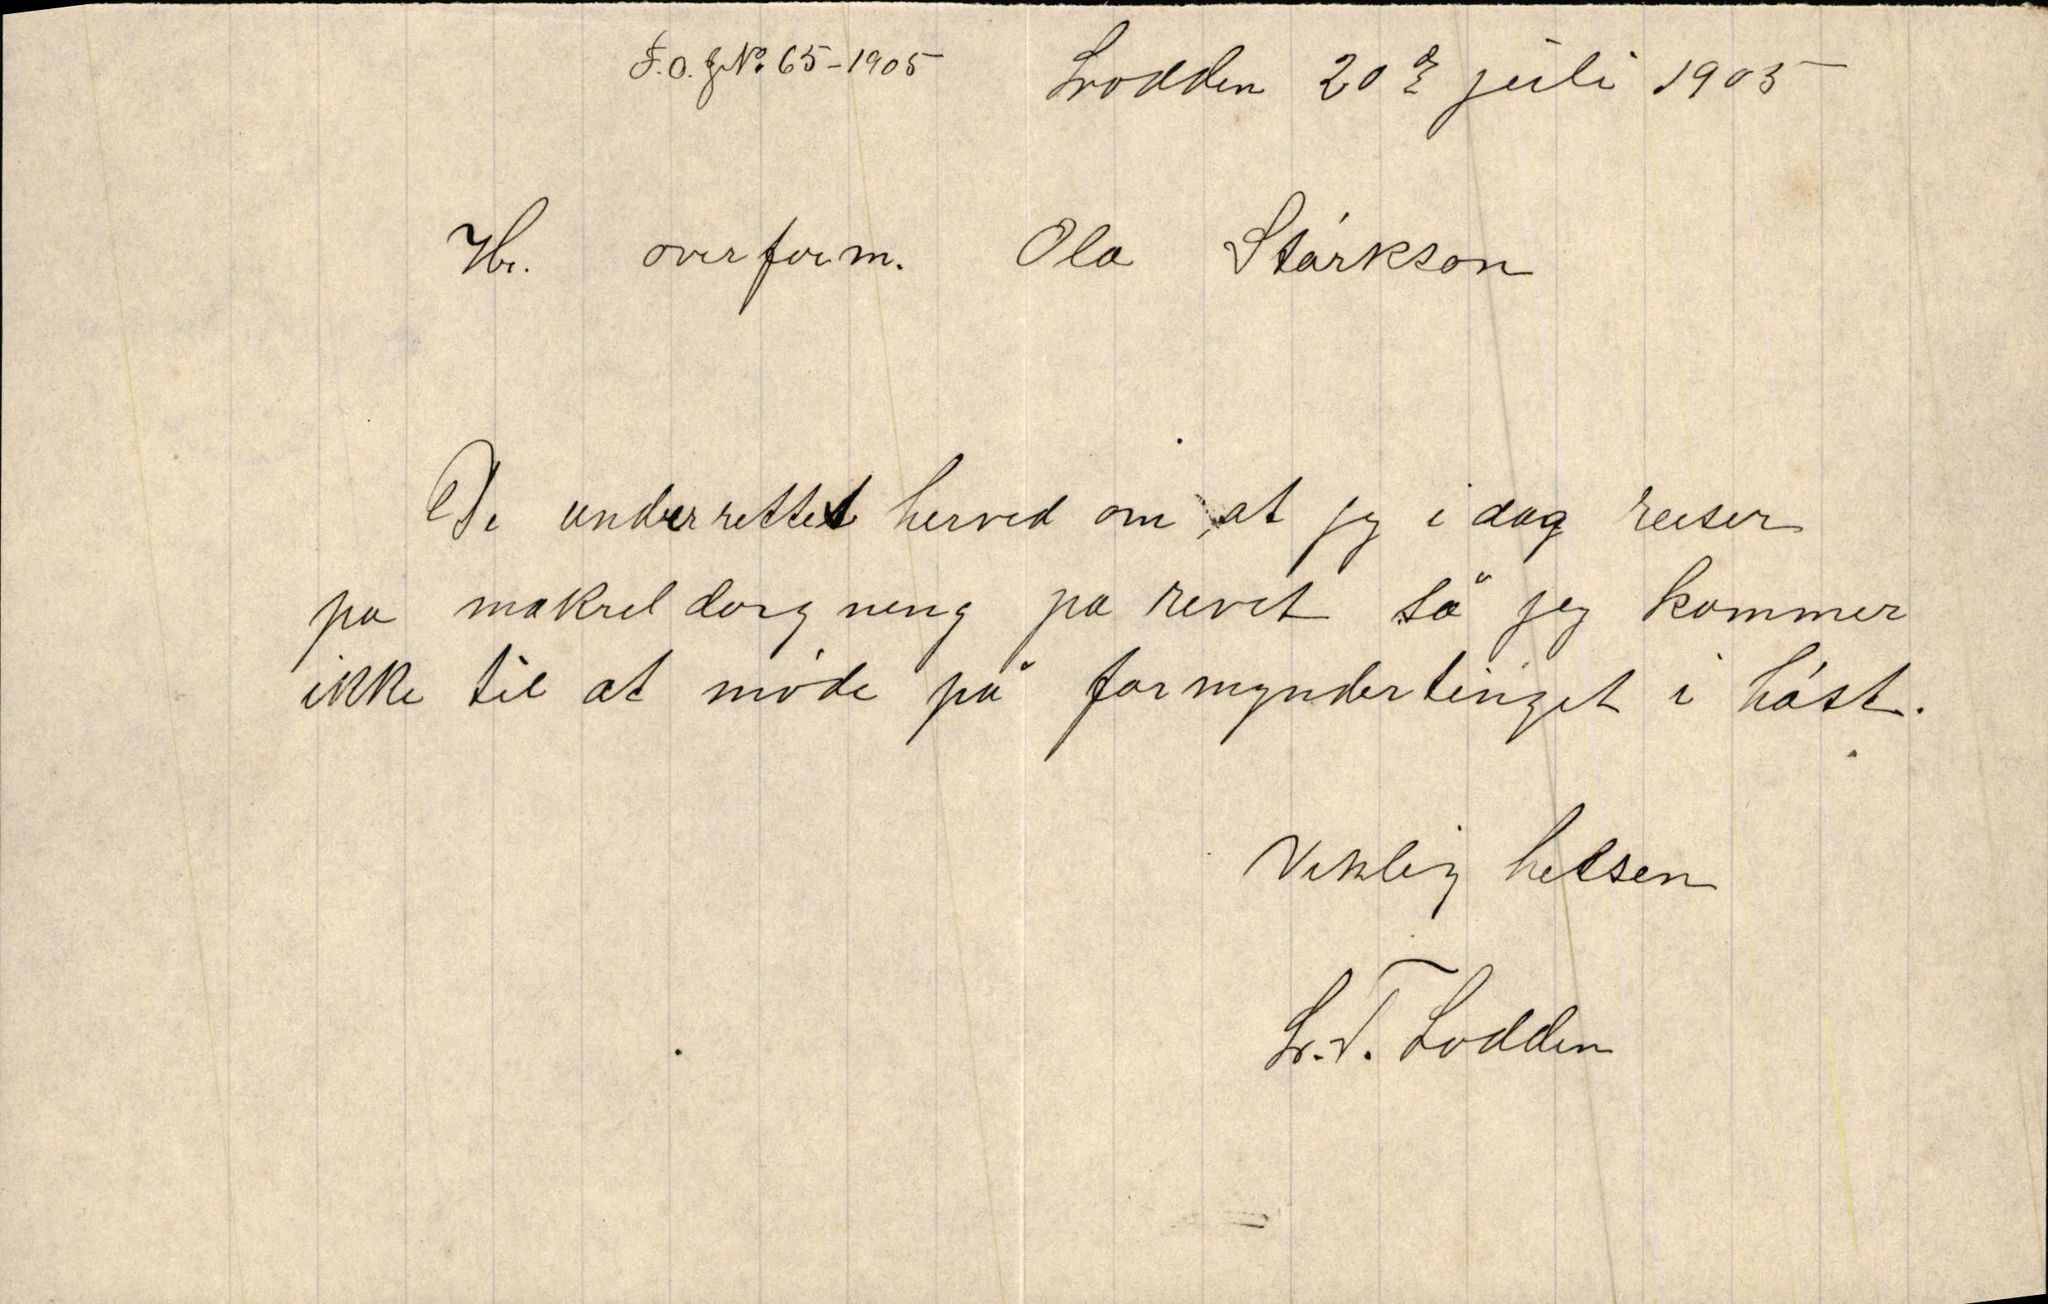 F.O.JNo. 65-1905
Lodden 20de juli 1905
Hr. overform. Ola Stárkson
De underrettet herved om at jeg i dag reiser
pa makreldorgneng pa revet så jeg kommer
ikke til at móde på formyndertinget i hóst.
Viklig helsen
L.T. Lodden